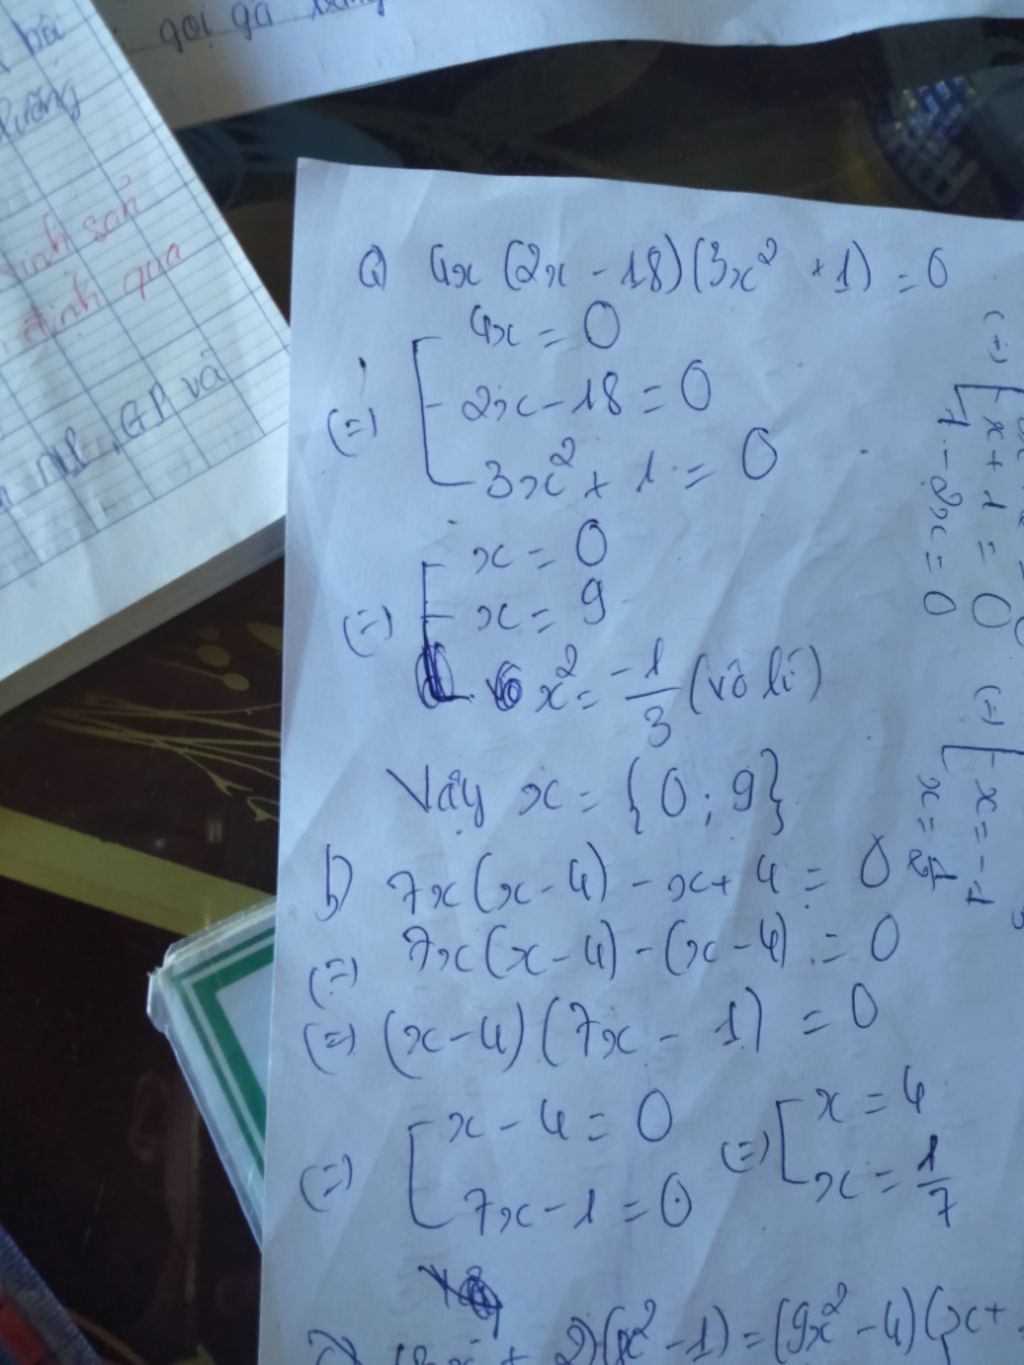 gọi gà
sinh sản
định qua
GP và
a) 4x (2x - 18)(3x² + 1) = 0
4x = 0
(=) 2x - 18 = 0
3x² + 1 = 0
x = 0
(=) x = 9
x² = -1/3 (vô lí)
Vậy x = {0; 9}
b) 7x(x - 4) - x + 4 = 0
(=) 7x(x - 4) - (x - 4) = 0
(=) (x - 4)(7x - 1) = 0
(=) x - 4 = 0 (=) x = 4
7x - 1 = 0 x = 1/7
2)(x² - 1) = (9x² - 4)(x +
(=) x + 1 = 0 (=) x = -1
1 - 2x = 0 x = 1/2